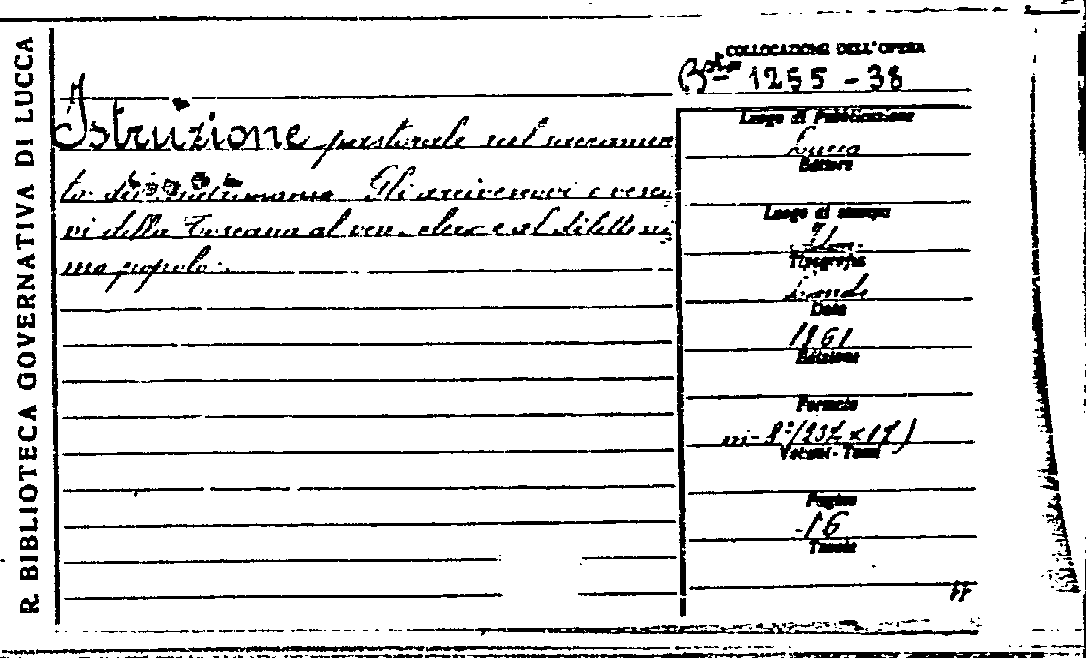 R. BIBLIOTECA GOVERNATIVA DI LUCCA
COLLOCAZIONE DELL'OPERA
Bta 1255 - 38
Istruzione pastorale sul sacramen
to del matrimonio Gli arcivescovi e vesco
vi della Toscana al ven. clero e al dilettissi
mo popolo.
Luogo di Pubblicazione
Lucca
Editore
Luogo di stampa
Tipografia
Landi
Data
1861
Edizione
Formato
in-8º (23½ x 17)
Volumi - Tomi
Pagine
16
Tavole